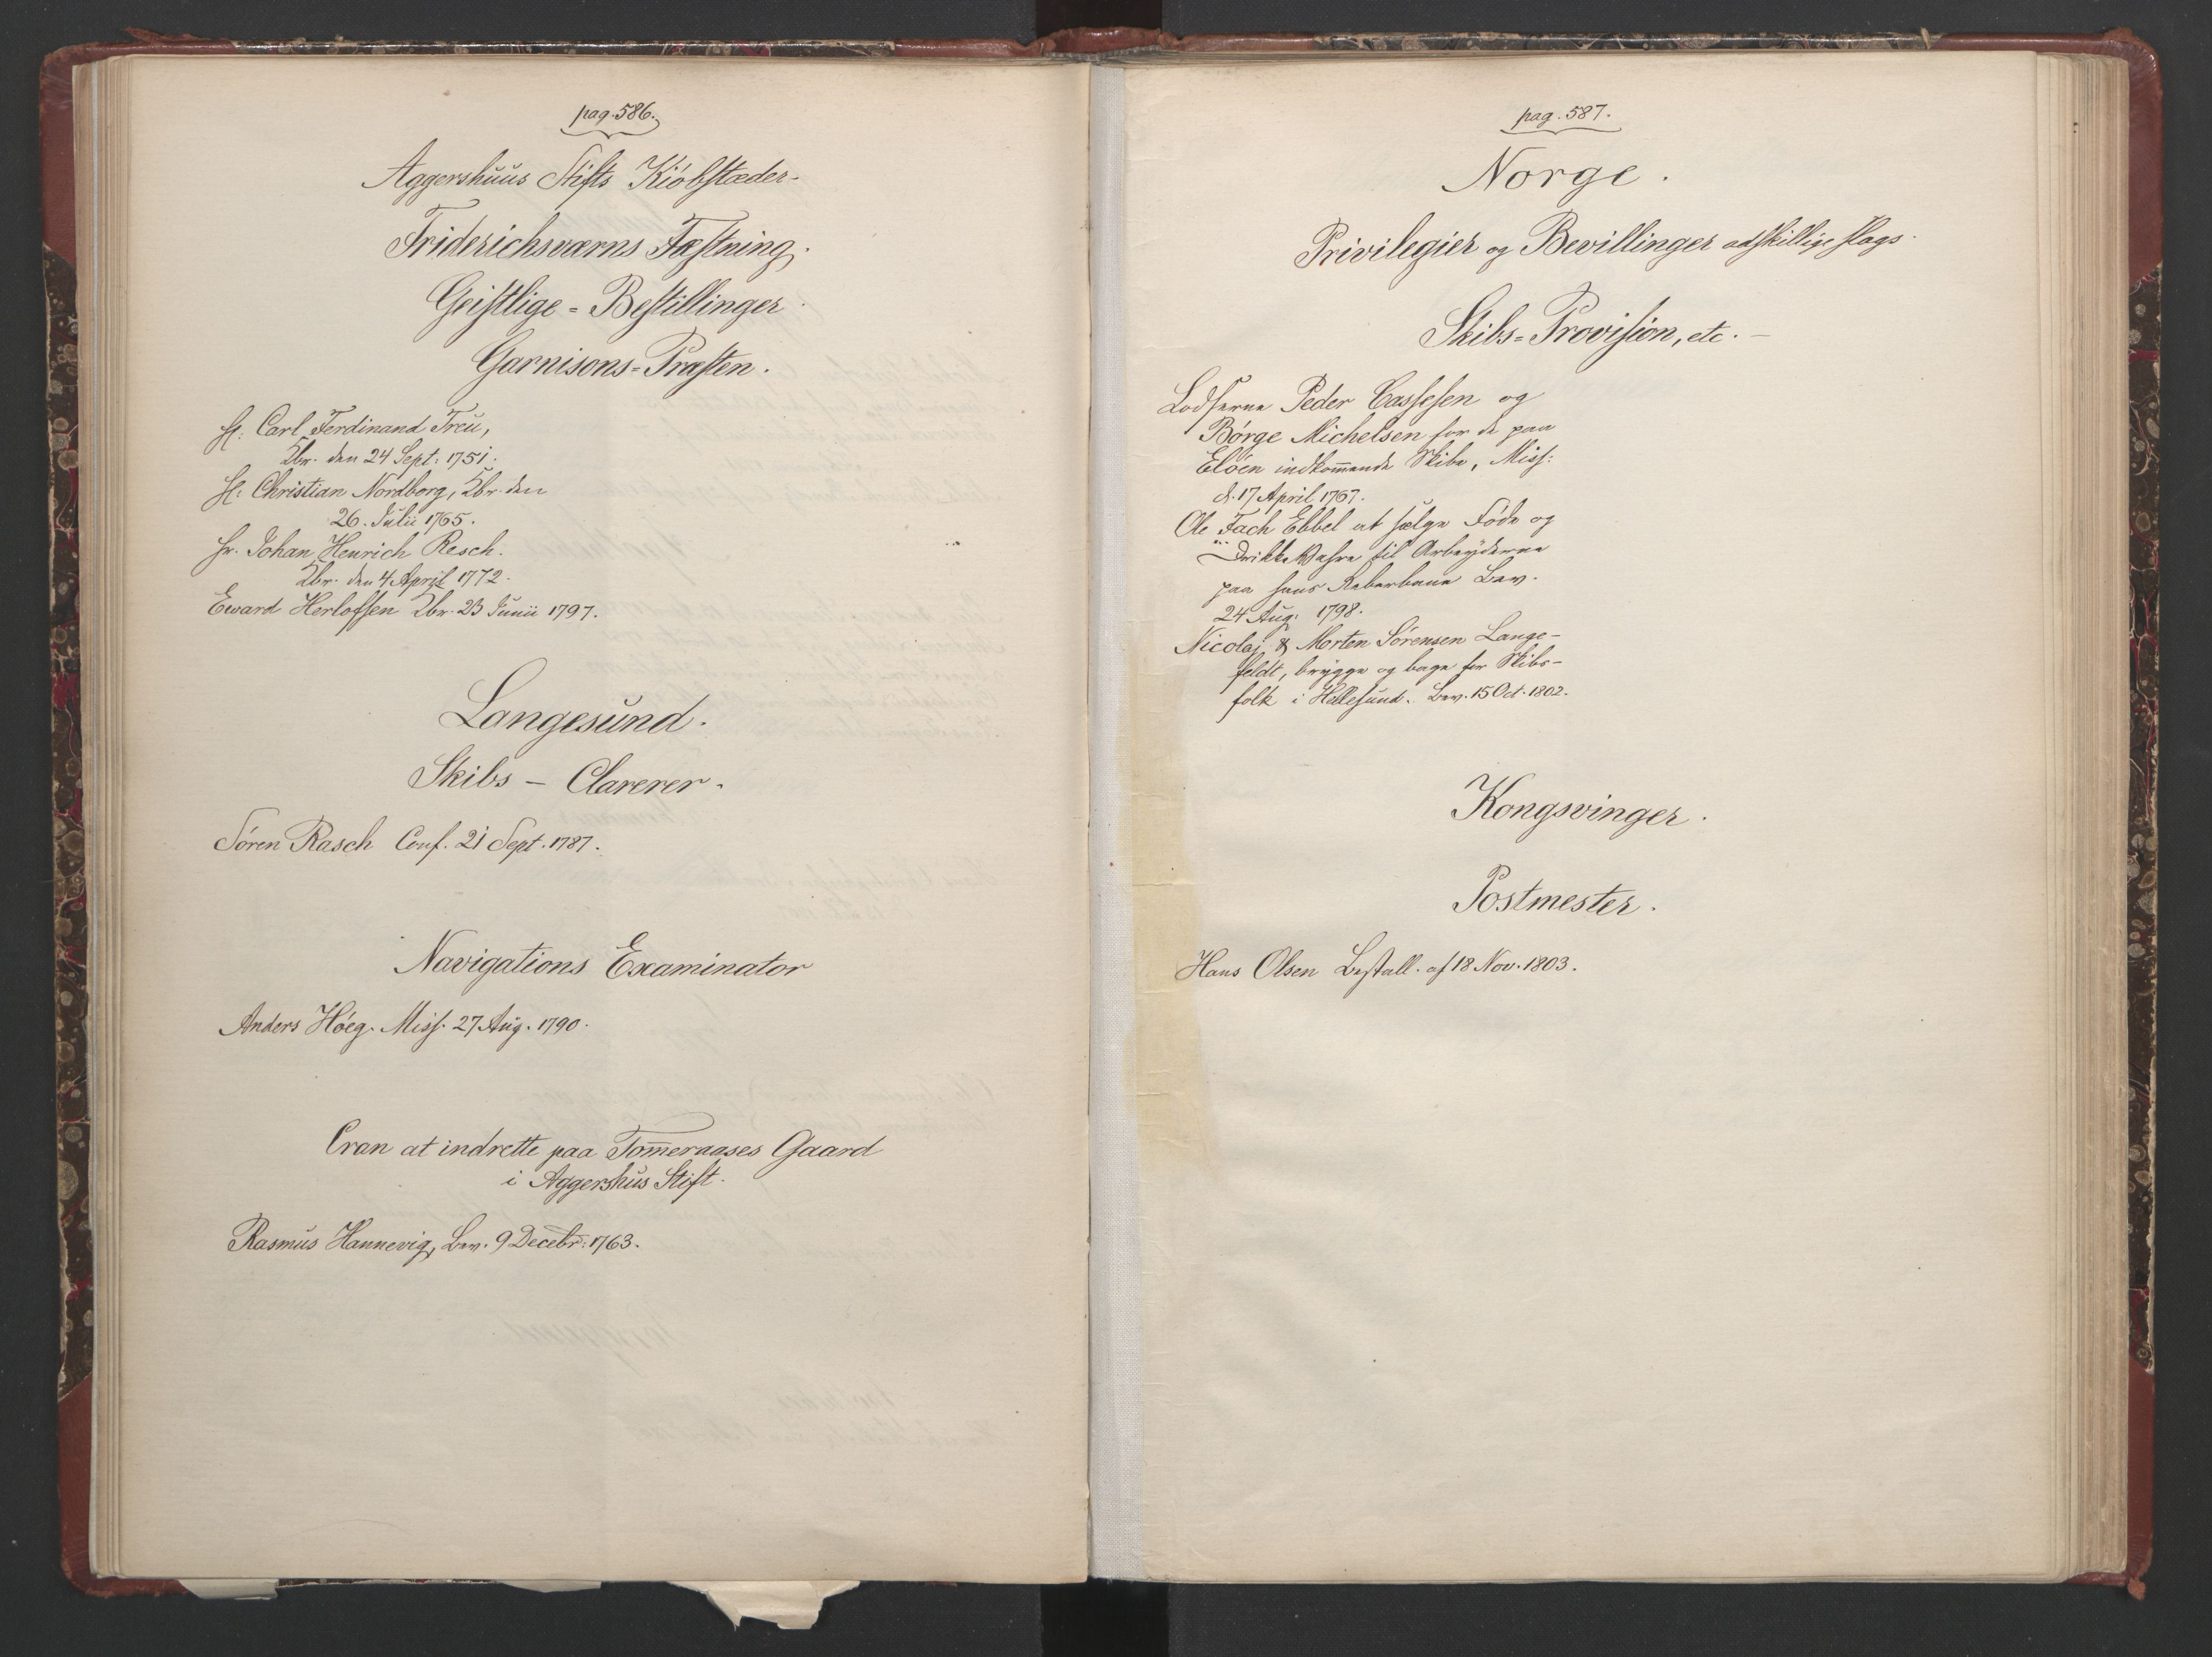 pag. 586.
Aggershuus Stifts Kiöbstæder.
Friderichsværns Fæstning.
Geistlige = Bestillinger.
Garnisons = Præsten.
H: Carl Ferdinand Treu,
Kbr. den 24 Sept: 1751.
H: Christian Nordborg, Kbr. den
26. Julii 1765.
Hr. Johan Henrich Resch.
Kbr. den 4 April 1772.
Eward Herlofsen Kbr. 23 Junii 1797.
Langesund.
Skibs - Clarerer.
Sören Rasch Conf. 21 Sept. 1787.
Navigations Examinator
Anders Höeg. Miss. 27 Aug. 1790.
Cran at indrette paa Tom̅eraases Gaard
i Aggershus Stift.
Rasmus Hannevig, Bev. 9 Decebr: 1763.
pag. 587.
Norge.
Privilegier og Bevillinger adskillige slags.
Skibs = Provision, etc. -
Lodserne Peder Cassesen og
Börge Michelsen for de paa
Elöen indkom̅ende Skibe, Miss:
d. 17 April 1767.
Ole Fach Ebbel at sælge Föde og
Drikke Vahre til Arbeyderne
paa hans Reberbane Bev.
24 Aug: 1798.
Nicolaj & Morten Sörensen Lange-
feldt, brygge og bage for Skibs-
folk i Hellesund. Bev. 15 Oct. 1802.
Kongsvinger.
Postmester.
Hans Olsen Bestall. af 18 Nov. 1803.